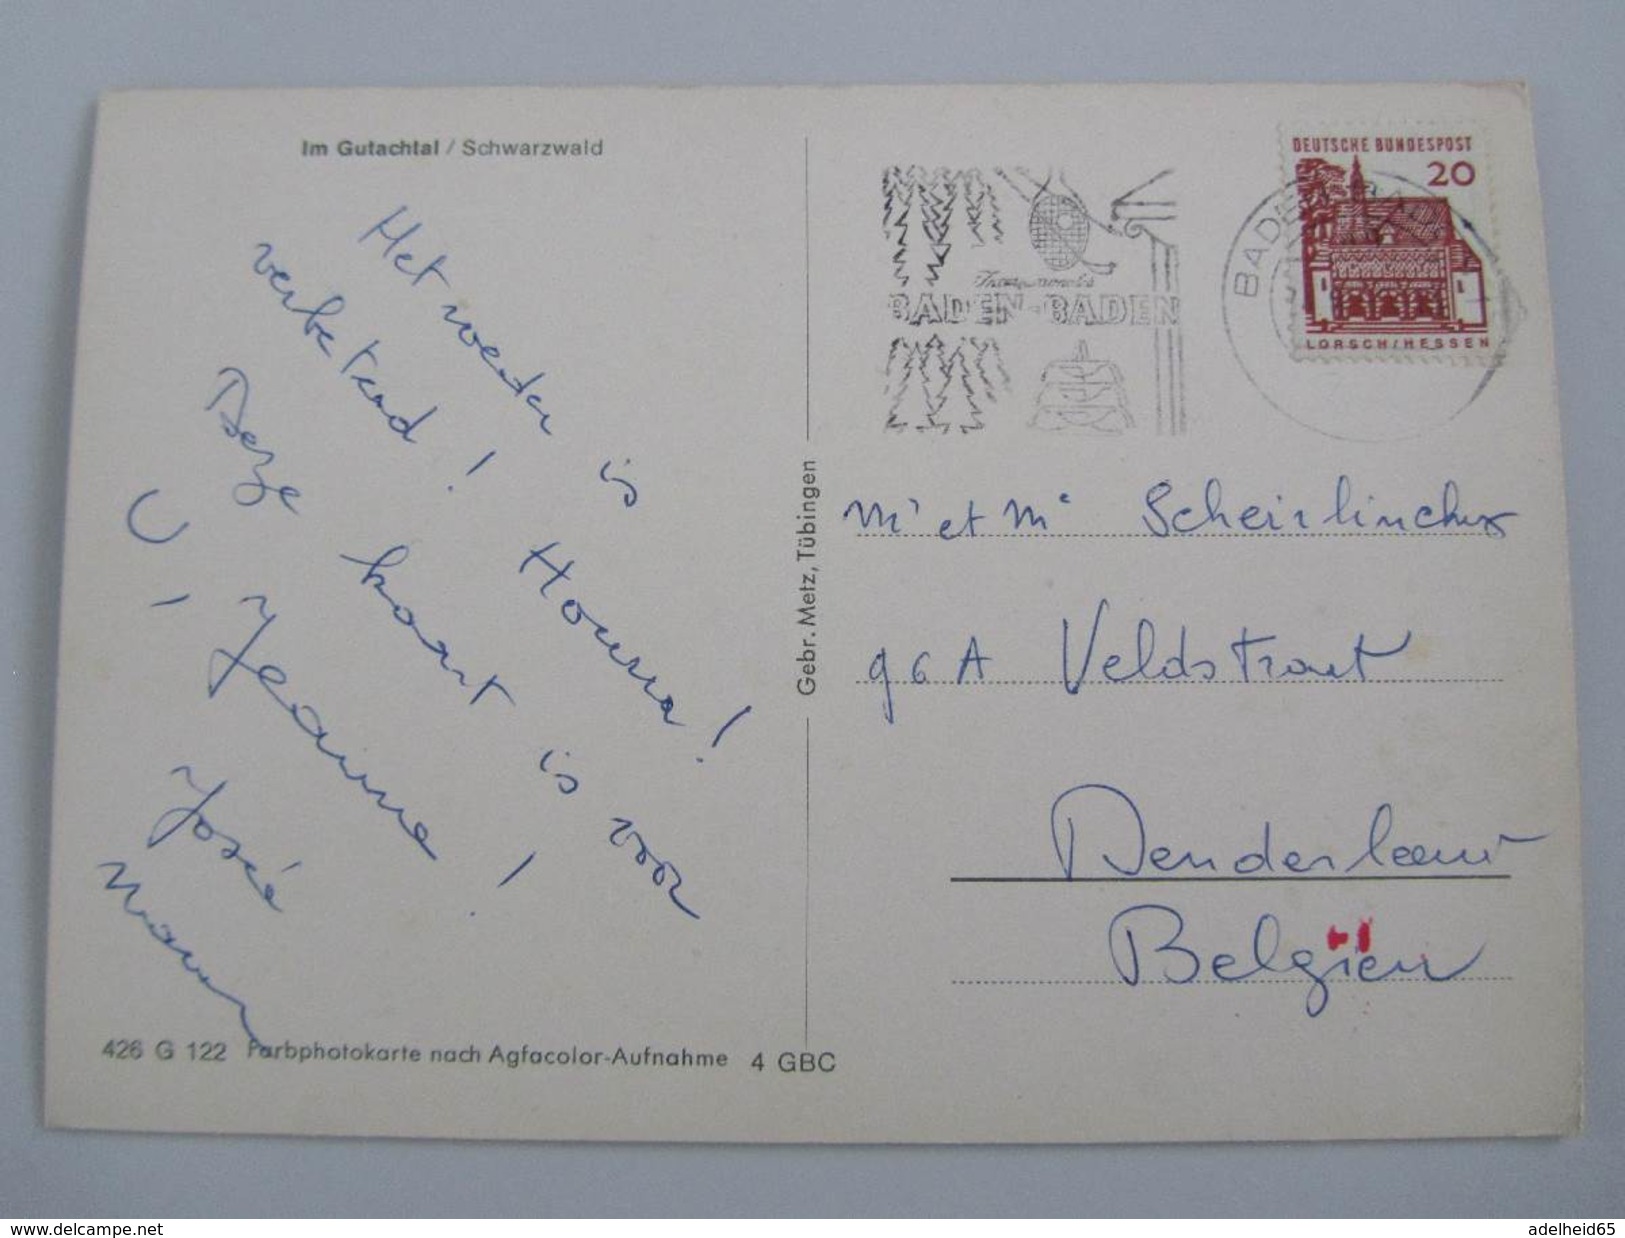 Im Gutachtal / Schwarzwald
Het weder is
verbeterd! Hourra!
Deze kaart is voor
U, Jeanne!
José
DEUTSCHE BUNDESPOST
20
LORSCH/HESSEN
BADEN-BADEN
BADEN-BADEN
Gebr. Metz, Tübingen
Mr et Me Scheirlinckx
96A Veldstraat
Denderleeuw
Belgien
426 G 122 Farbphotokarte nach Agfacolor-Aufnahme 4 GBC
www.delcampe.net
adelheid65